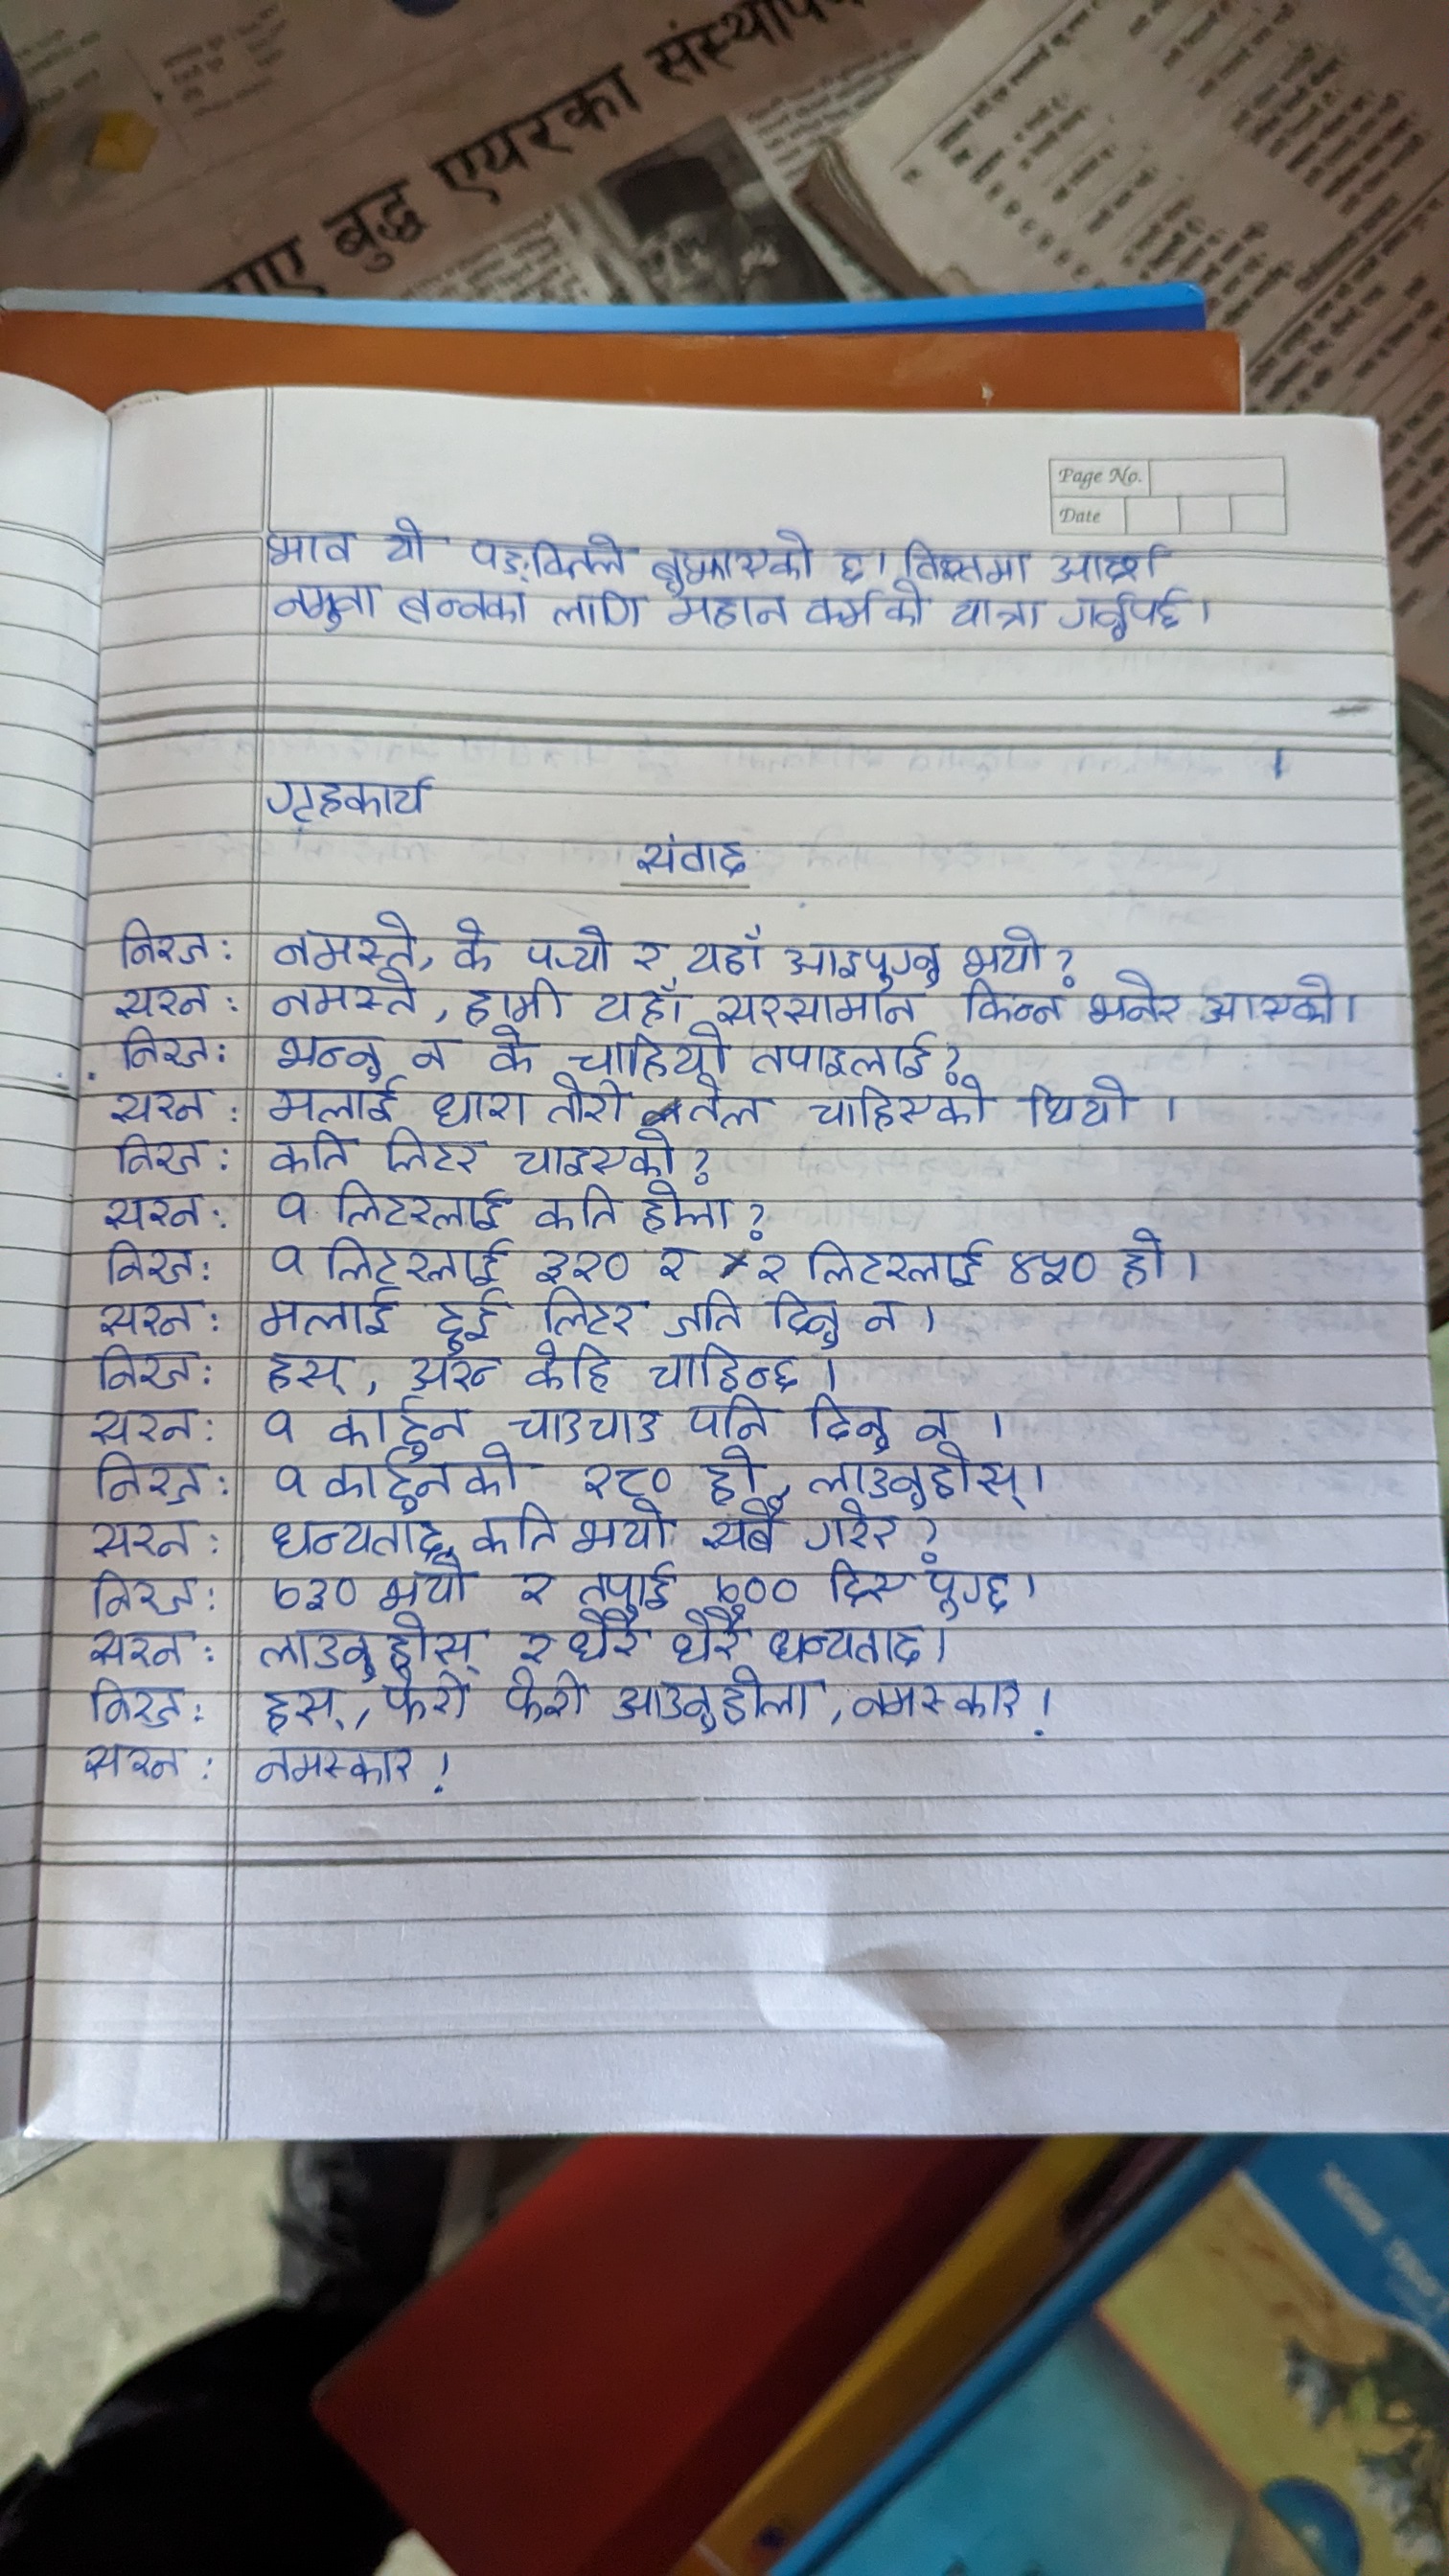 ाए बुद्ध एयरका संस्थाप
Page No.
Date
भाव यो पङ्क्तिले बुझाएको छ। विश्वमा आदर्श
नमुना बन्नका लागि महान कर्मको यात्रा गर्नुपर्छ।
गृहकार्य
संवाद
निरज: नमस्ते, के पर्‍यो र यहाँ आइपुग्नु भयो?
सरन: नमस्ते, हामी यहाँ सरसामान किन्न भनेर आएको।
निरज: भन्नु न के चाहियो तपाइलाई?
सरन: मलाई धारा तोरी तेल चाहिएको थियो।
निरज: कति लिटर चाइएको?
सरन: १ लिटरलाई कति होला?
निरज: १ लिटरलाई ३२० र २ लिटरलाई ४५० हो।
सरन: मलाई दुई लिटर जति दिनु न।
निरज: हस्, अरन केहि चाहिन्छ।
सरन: १ कार्टुन चाउचाउ पनि दिनु न।
निरज: १ कार्टुनको २८० हो, लाउनुहोस्।
सरन: धन्यवाद, कति भयो सबै गरेर?
निरज: ७३० भयो र तपाई ७०० दिए पुग्छ।
सरन: लाउनुहोस् र धेरै धेरै धन्यवाद।
निरज: हस्, फेरी फेरी आउनुहोला, नमस्कार!
सरन: नमस्कार!